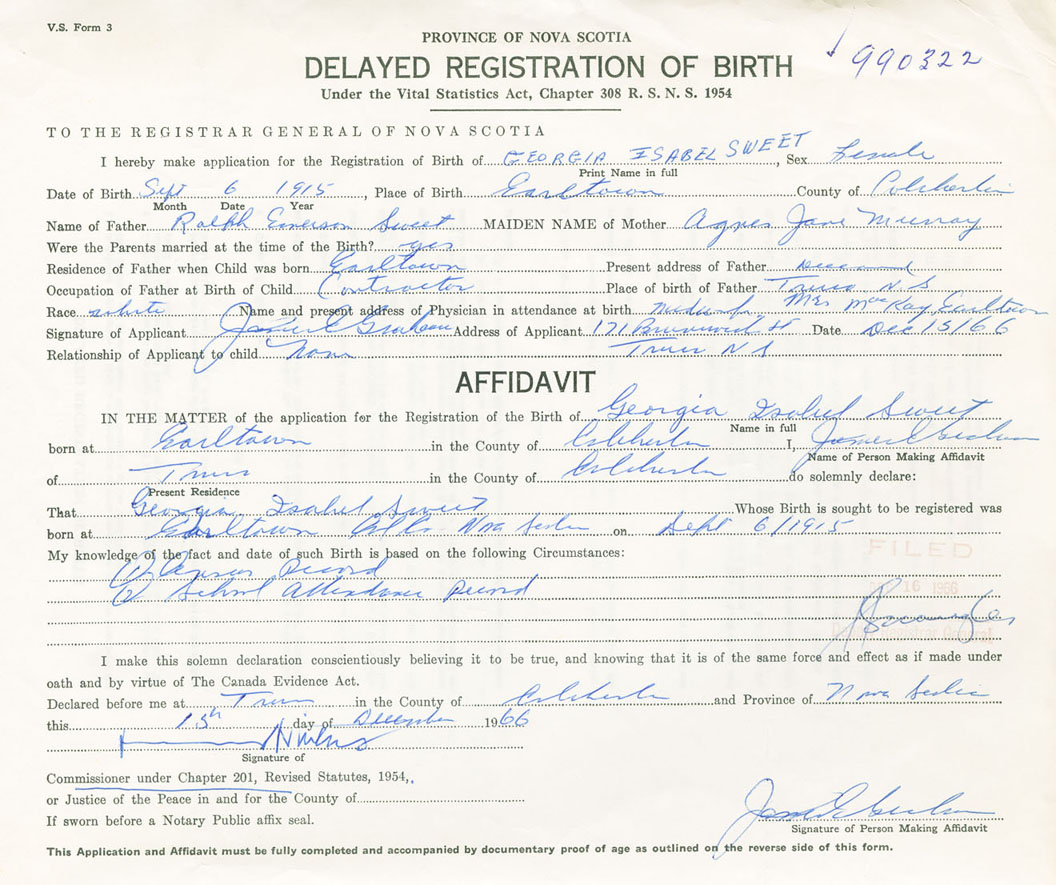 V.S. Form 3
PROVINCE OF NOVA SCOTIA
990322
DELAYED REGISTRATION OF BIRTH
Under the Vital Statistics Act, Chapter 308 R. S. N. S. 1954
TO THE REGISTRAR GENERAL OF NOVA SCOTIA
I hereby make application for the Registration of Birth of GEORGIA ISABEL SWEET, Sex Female
Print Name in full
Date of Birth Sept 6 1915, Place of Birth Earltown County of Colchester
Month Date Year
Name of Father Ralph Emerson Sweet MAIDEN NAME of Mother Agnes Jane Murray
Were the Parents married at the time of the Birth? yes
Residence of Father when Child was born Earltown Present address of Father Deceased
Occupation of Father at Birth of Child Contractor Place of birth of Father Truro N.S
Race white Name and present address of Physician in attendance at birth Midwife Mrs MacKay, Earltown
Signature of Applicant James E Graham Address of Applicant 171 Brunswick St Date Dec 15/66
Relationship of Applicant to child None Truro N S
AFFIDAVIT
IN THE MATTER of the application for the Registration of the Birth of Georgia Isabel Sweet
Name in full
born at Earltown in the County of Colchester I, James E
Name of Person Making Affidavit
of Truro in the County of Colchester do solemnly declare:
Present Residence
That Georgia Isabel Sweet Whose Birth is sought to be registered was
born at Earltown Col Co Nova Scotia on Sept 6/1915
My knowledge of the fact and date of such Birth is based on the following Circumstances:
FILED
(1) Census Record
(2) School Attendance Record
16 1966
I make this solemn declaration conscientiously believing it to be true, and knowing that it is of the same force and effect as if made under
oath and by virtue of The Canada Evidence Act.
Declared before me at Truro in the County of Colchester and Province of Nova Scotia
this 15th day of December 1966
Signature of
Commissioner under Chapter 201, Revised Statutes, 1954,
or Justice of the Peace in and for the County of
If sworn before a Notary Public affix seal.
James E
Signature of Person Making Affidavit
This Application and Affidavit must be fully completed and accompanied by documentary proof of age as outlined on the reverse side of this form.